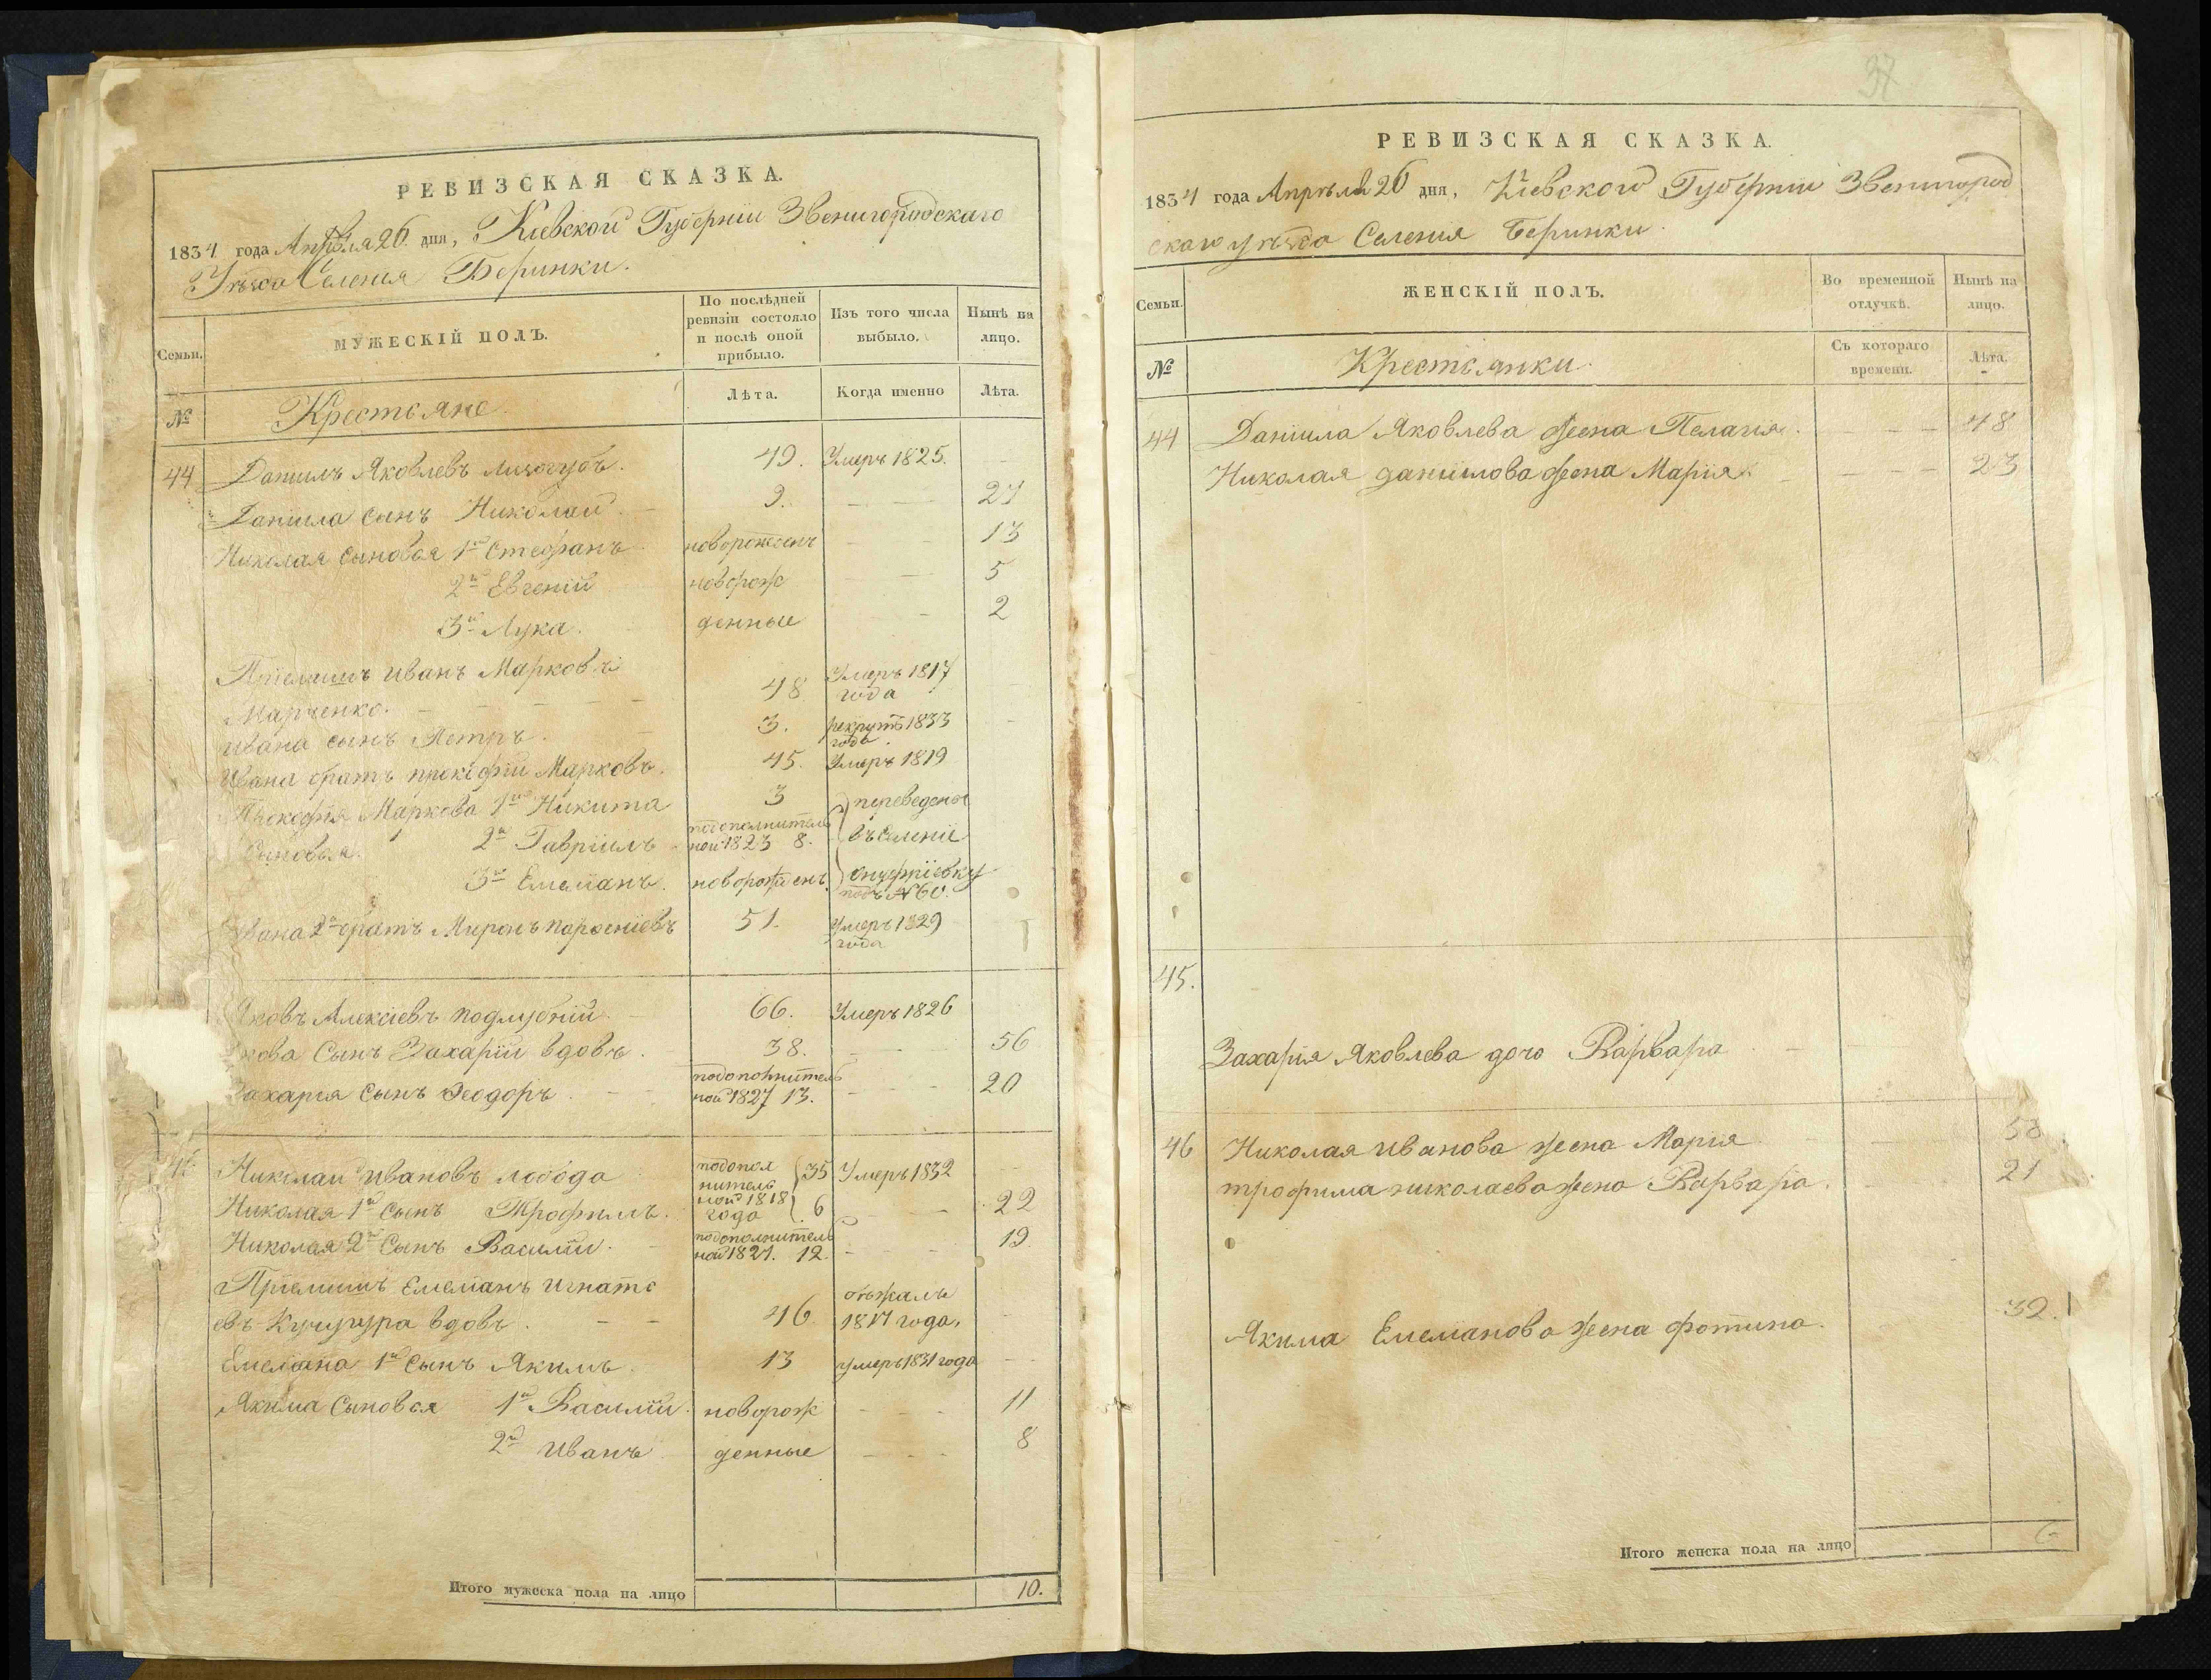 РЕВИЗСКАЯ СКАЗКА.
1834 года Апрѣля 26 дня, Кіевской Губерніи Звенигородскаго
Уѣзда Селенія Беринки.
Семьи.
МУЖЕСКІЙ ПОЛЪ.
По послѣдней ревизіи состояло и послѣ оной прибыло.
Изъ того числа выбыло.
Нынѣ на лицо.
№
Крестьяне
Лѣта.
Когда именно
Лѣта.
44 Данилъ Яковлевъ 49. Умеръ 1825.
Даніила сынъ Николай 9. 27
Николая сыновья 1й Стефанъ новорожденъ 13
2й Евгеній новорож 5
3й Лука. денные 2
Пріемышъ иванъ Марковъ
Марченко. 48 Умеръ 1817 года
ивана сынъ Петръ. 3. рекрутъ 1833 года
Ивана братъ прокофій Марковъ. 45. Умеръ 1819
Прокофія Маркова 1й Никита 3 переведены
сыновья. 2й Гавріилъ подополнитель ной 1823 8. въ Селеніе
3й Емеліанъ. новорожденъ. онуфріевку подъ №60.
Ивана 2й братъ Миронъ 51. Умеръ 1829 года
Яковъ Алексіевъ подлубній. 66. Умеръ 1826
Якова Сынъ Захарій вдовъ. 38. 56
Захарія Сынъ Феодоръ. подополнитель ной 1827 13. 20
46 Николай Ивановъ лобода подопол нитель ной 1818 года 35 Умеръ 1832
Николая 1й Сынъ Трофимъ. 6 22
Николая 2й Сынъ Василій. подополнитель ной 1827. 12. 19
Пріемышъ Емеліанъ Игнатье
евъ Кучугура вдовъ. 46. бѣжалъ 1817 года,
Емеліана 1й Сынъ Якимъ 13 умеръ 1831 года
Якима Сыновья 1й Василій. новорож 11
2й Иванъ денные 8
Итого мужеска пола на лицо 10.
37
РЕВИЗСКАЯ СКАЗКА.
1834 года Апрѣля 26 дня, Кіевской Губерніи Звенигород
скаго уѣзда Селенія Беринки.
Семьи.
ЖЕНСКІЙ ПОЛЪ.
Во временной отлучкѣ.
Нынѣ на лицо.
№
Крестьянки
Съ котораго времени.
Лѣта.
44 Даніила Яковлева жена Пелагія. 48
Николая даніилова жена Марія. 23
45.
Захарія Яковлева дочь Варвара
46 Николая иванова жена Марія
трофима николаева жена Варвара. 21
Якима Емеліанова жена фотина. 32.
Итого женска пола на лицо 6